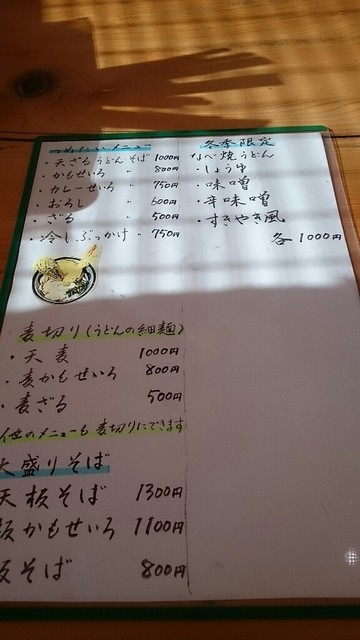 つめたいメニュー
・天ざるうどんそば 1000円
・かもせいろ 〃 800円
・カレーせいろ 〃 750円
・おろし 〃 600円
・ざる 〃 500円
・冷しぶっかけ 〃 750円
冬季限定
なべ焼うどん
・しょうゆ
・味噌
・辛味噌
・すきやき風
各1000円
麦切り(うどんの細麺)
・天麦 1000円
・麦かもせいろ 800円
・麦ざる 500円
他のメニューも麦切りにできます
大盛りそば
天板そば 1300円
板かもせいろ 1100円
板そば 800円